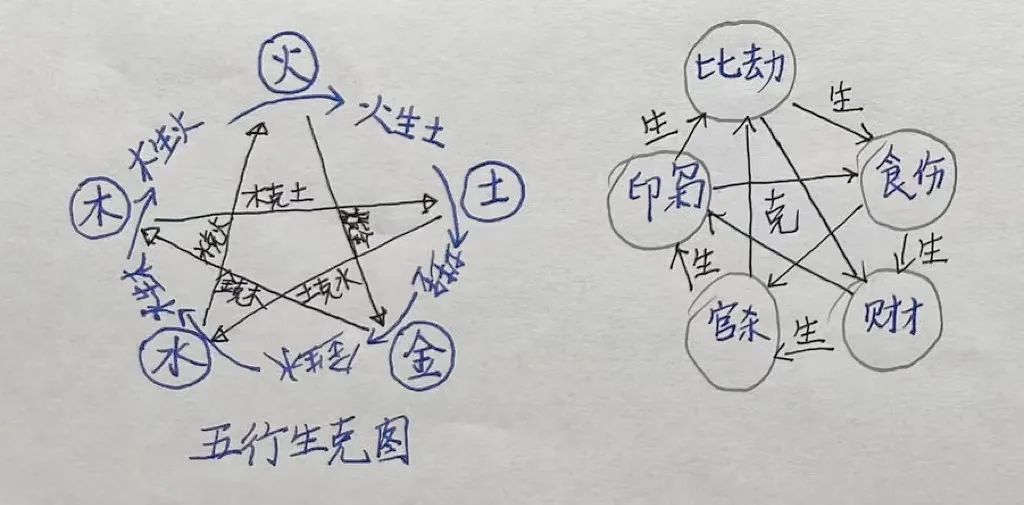 火
火生土
土
金
金生水
水
水生木
木
木生火
木克土
水克火
土克水
五行生克图
比劫
生
生
印枭
食伤
克
生
生
官杀
生
财才